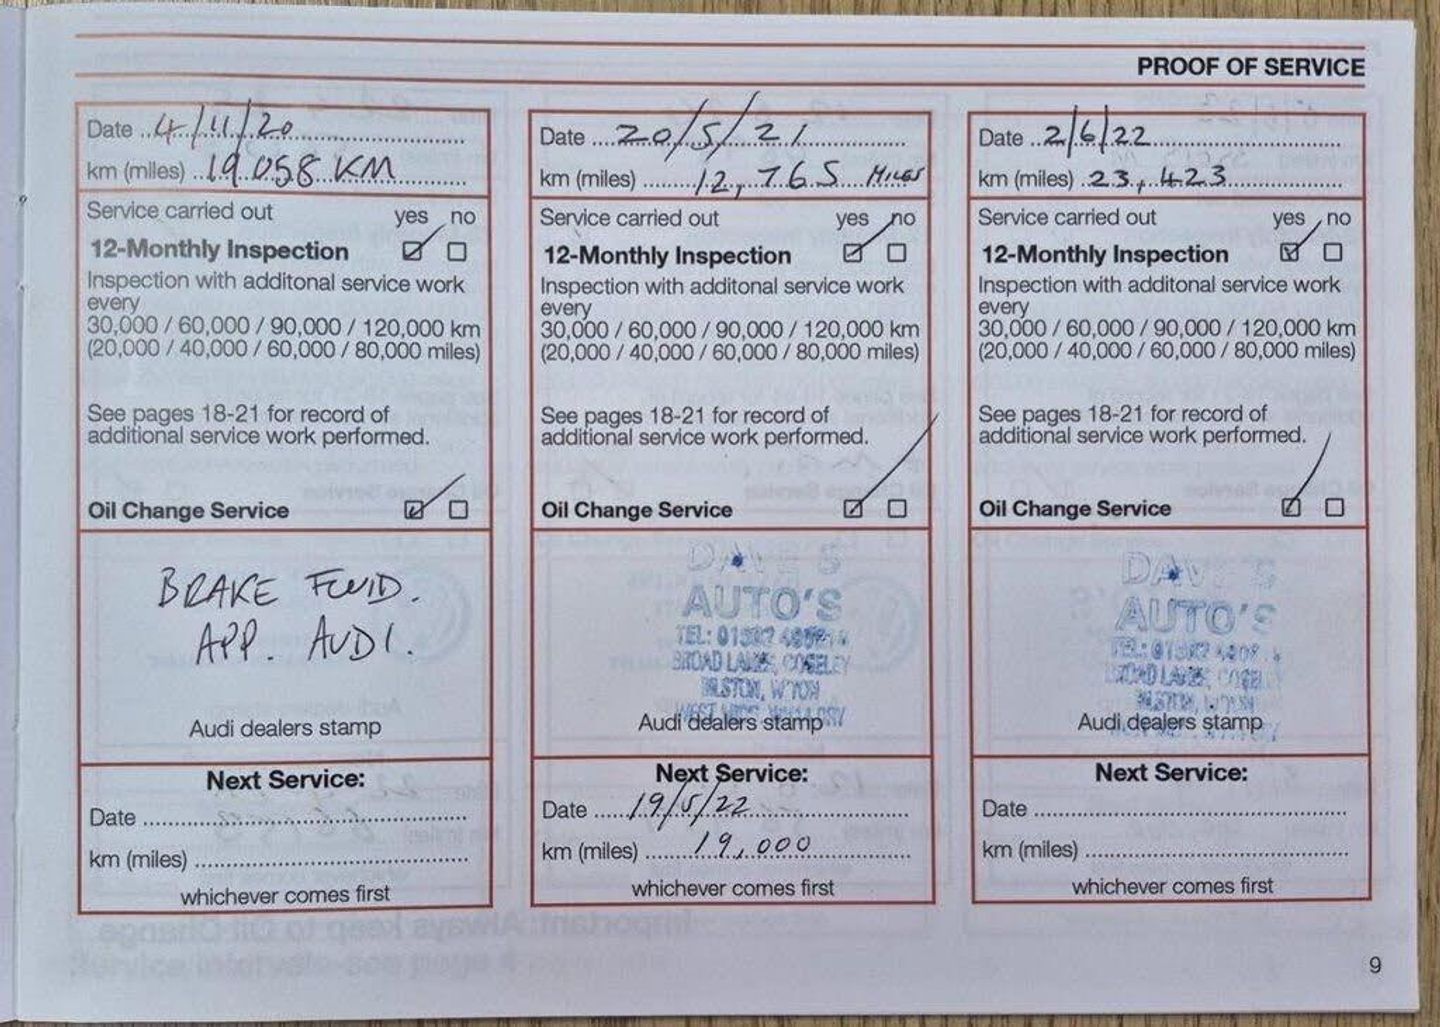 PROOF OF SERVICE
Date 4/11/20
km (miles) 19058 KM
Service carried out yes no
12-Monthly Inspection
Inspection with additonal service work
every
30,000 / 60,000 / 90,000 / 120,000 km
(20,000 / 40,000 / 60,000 / 80,000 miles)
See pages 18-21 for record of
additional service work performed.
Oil Change Service
BRAKE FLUID.
APP. AUDI.
Audi dealers stamp
Next Service:
Date
km (miles)
whichever comes first
Date 20/5/21
km (miles) 12,765 MILES
Service carried out yes no
12-Monthly Inspection
Inspection with additonal service work
every
30,000 / 60,000 / 90,000 / 120,000 km
(20,000 / 40,000 / 60,000 / 80,000 miles)
See pages 18-21 for record of
additional service work performed.
Oil Change Service
DAVE'S
AUTO'S
TEL:
BROAD LANES, COSELEY
BILSTON, W'TON
WEST MIDS,
Audi dealers stamp
Next Service:
Date 19/5/22
km (miles) 19,000
whichever comes first
Date 2/6/22
km (miles) 23,423
Service carried out yes no
12-Monthly Inspection
Inspection with additonal service work
every
30,000 / 60,000 / 90,000 / 120,000 km
(20,000 / 40,000 / 60,000 / 80,000 miles)
See pages 18-21 for record of
additional service work performed.
Oil Change Service
DAVE'S
AUTO'S
TEL:
BROAD LANES, COSELEY
BILSTON, W'TON
Audi dealers stamp
Next Service:
Date
km (miles)
whichever comes first
9